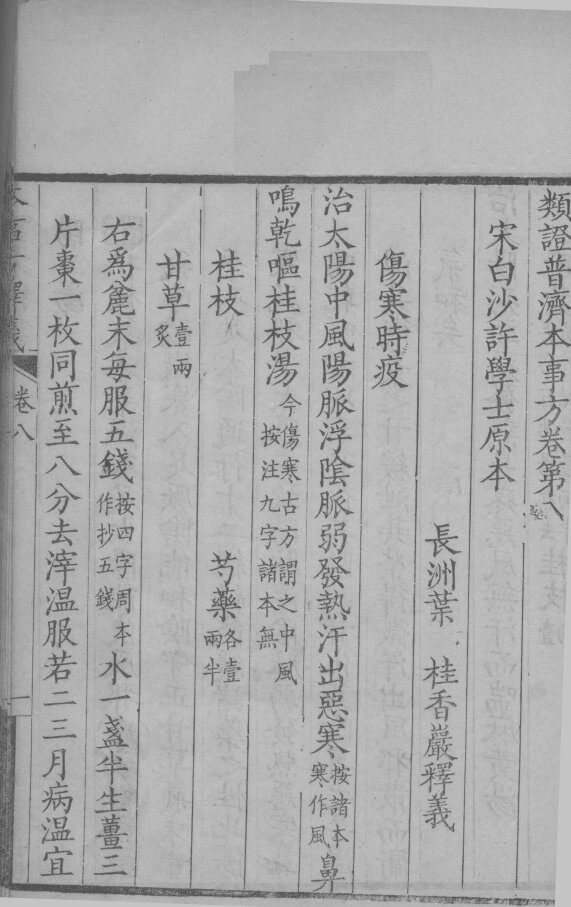 類證普濟本事方卷第八
宋白沙許學士原本
長洲葉 桂香巖釋義
傷寒時疫
治太陽中風陽脈浮陰脈弱發熱汗出惡寒按諸本寒作風鼻
鳴乾嘔桂枝湯今傷寒古方謂之中風按注九字諸本無
桂枝 芍藥各壹兩半
甘草壹兩炙
右為麄末每服五錢按四字周本作抄五錢水一盞半生薑三
片棗一枚同煎至八分去滓温服若二三月病温宜
卷八
一